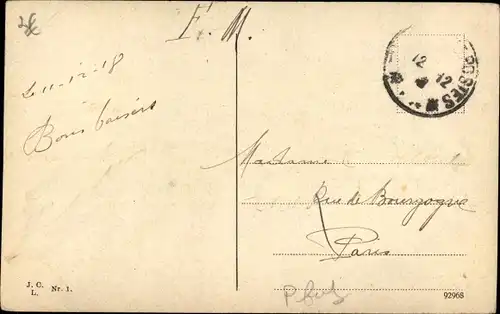 F. M.
POSTES
12
12
11-12-18
Bons baisers
Madame
Rue de Bourgogne
Paris
J. C.
L. Nr. 1.
92968